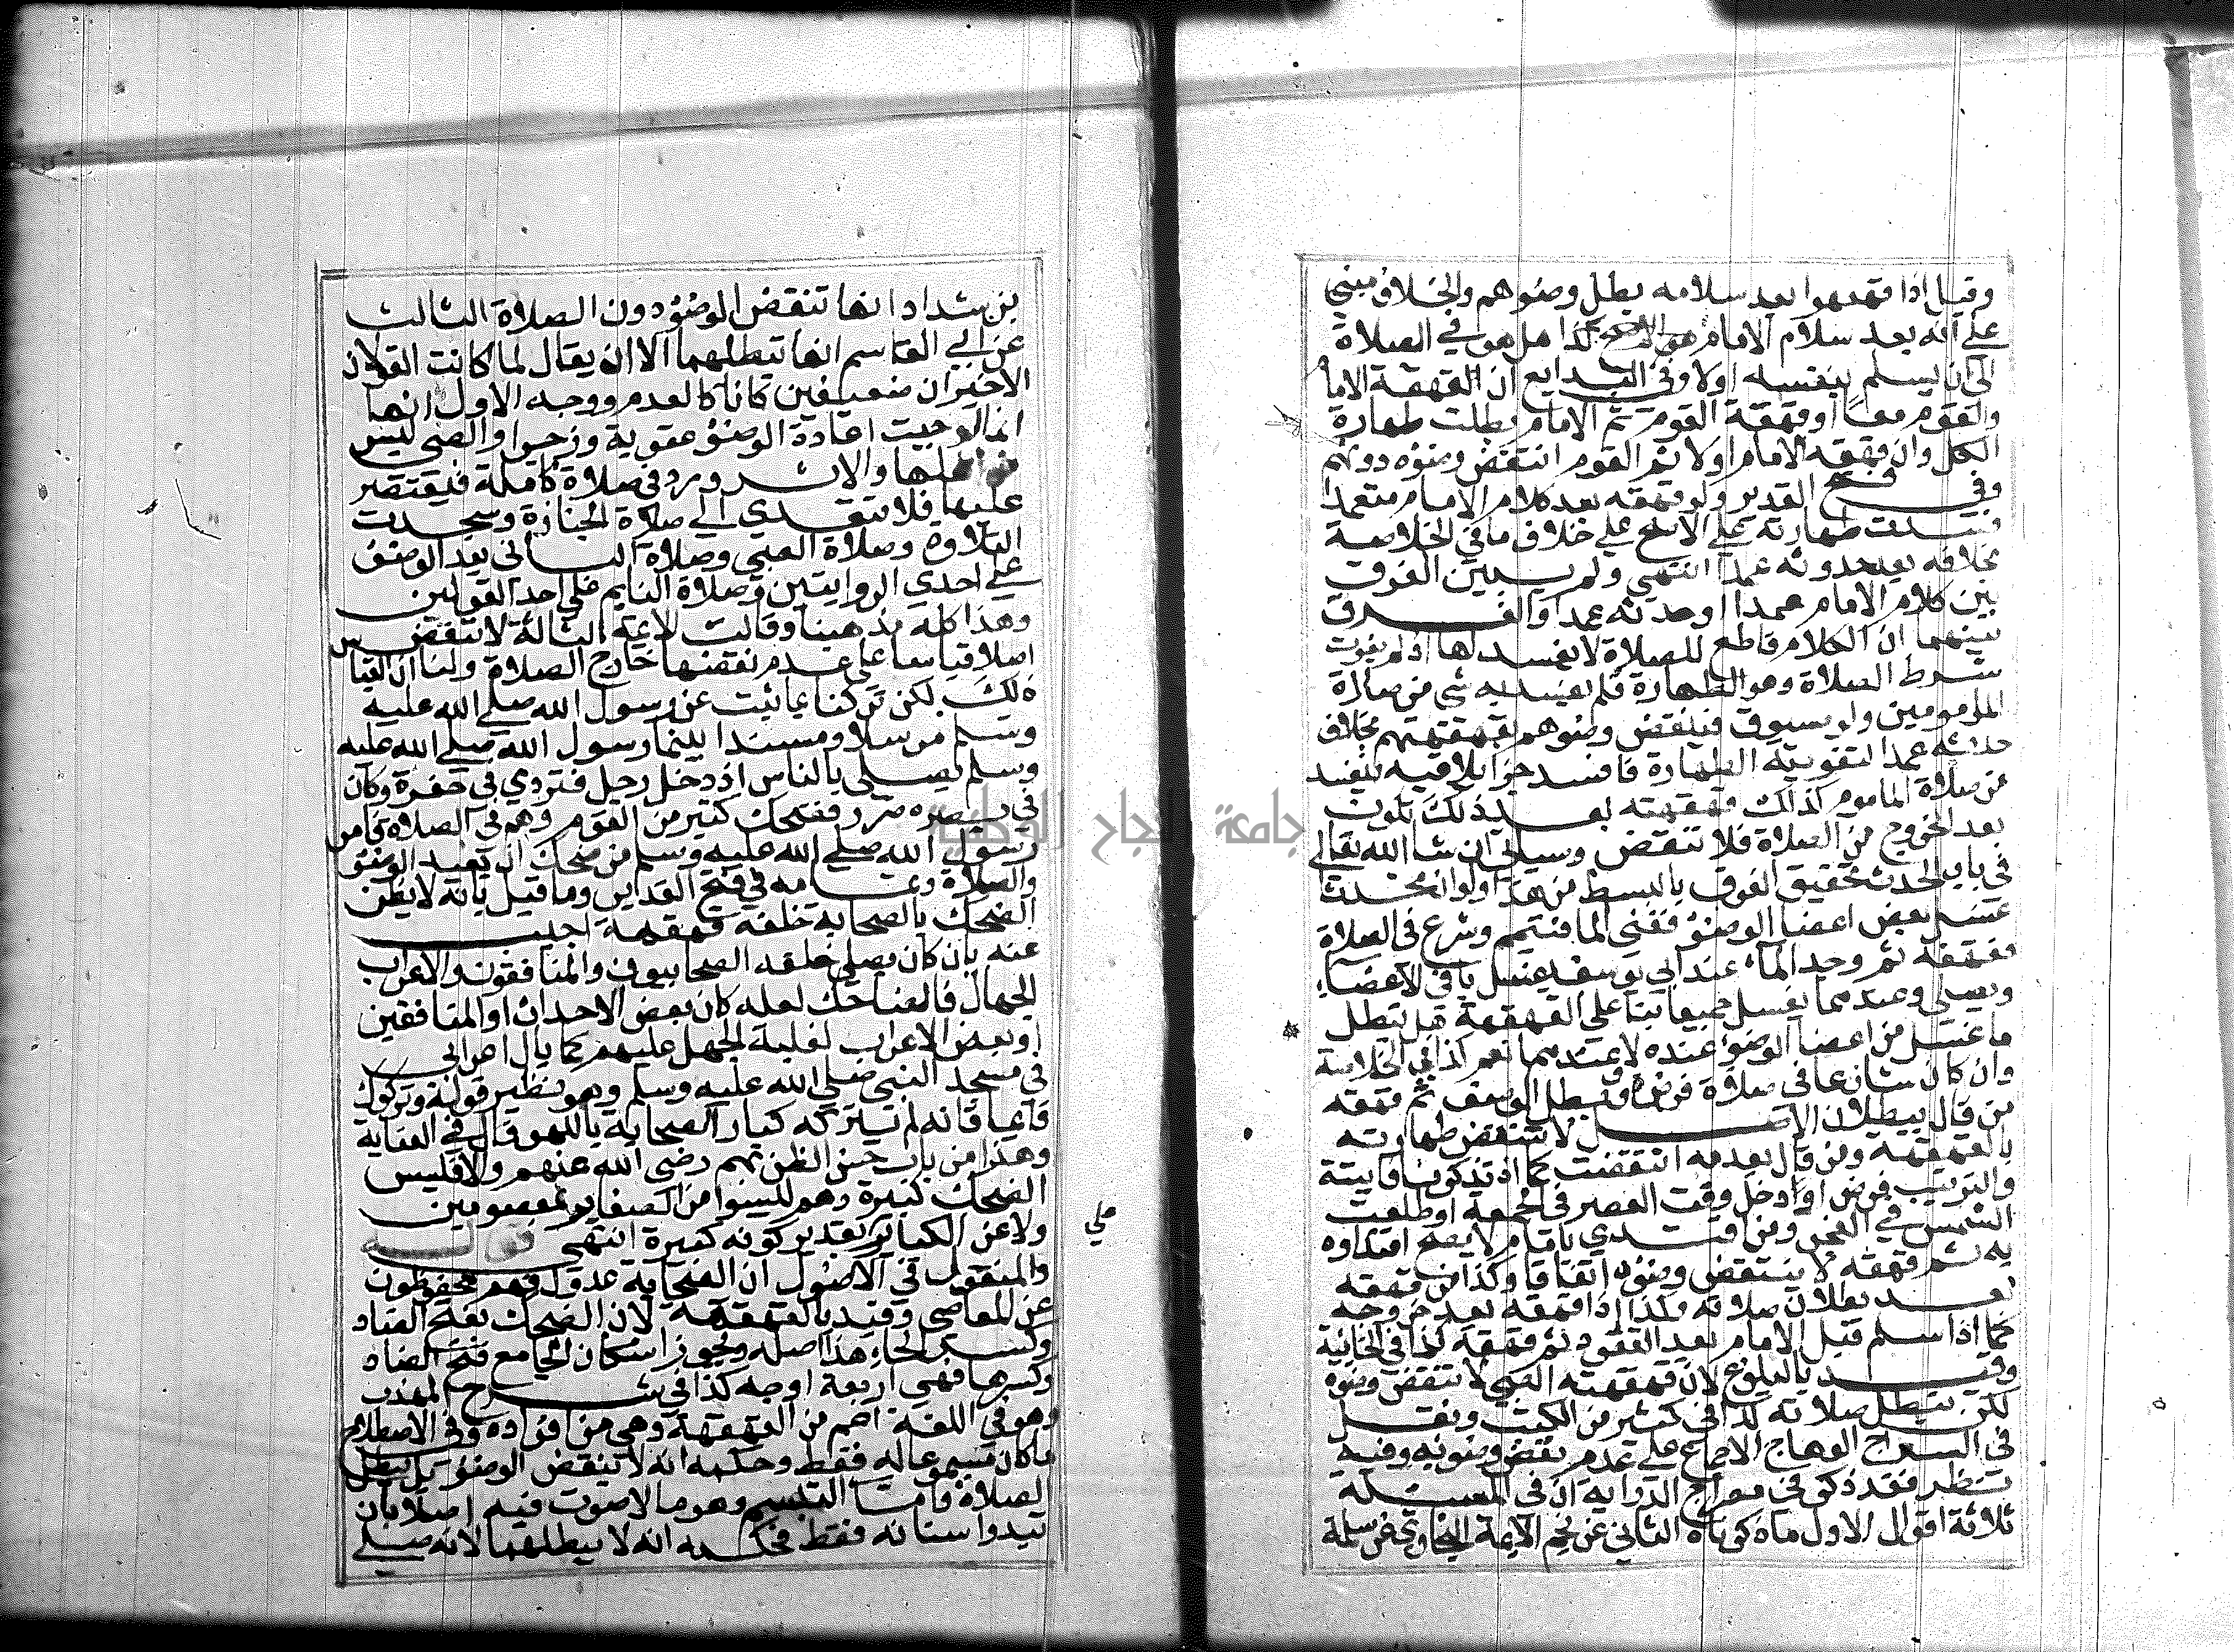 وقيل اذا قهقهوا بعد سلامه بطل وضوهم والخلاف مبني
علي انه بعد سلام الامام هو الاصح كذا هل هو في الصلاة
الي ان يسلم بنفسه اولا وفي البدايع ان القهقهة الاما
والقوم معا او قهقهة القوم ثم الامام بطلت طهارة
الكل وان قهقه الامام اولا ثم القوم انتقض وضوه دونهم
وفي فتح القدير ولو قهقه بعد كلام الامام متعمدا
فسدت طهارته علي الاصح علي خلاف ما في الخلاصة
بخلافه بعد حدوثه عمدا انتهي ولم يبين الفرق
بين كلام الامام عمدا او حدثه عمدا والفرق
بينهما ان الكلام قاطع للصلاة لا مفسد لها اذ لم يفوت
شرط الصلاة وهو الطهارة فلم يفسد به شي من صلاة
المامومين ولو مسبوق فينقض وضوهم بقهقهتهم بخلاف
حدثه عمدا لتفويته الطهارة فافسد جزا يلاقيه فيفسد
من صلاة الماموم كذلك فقهقهته بعد ذلك تكون
بعد الخروج من الصلاة فلا تنقض وسياتي ان شا الله تعالي
في باب الحدث تحقيق الفرق بالبسط من هذا ولو ان محدثا
غسل بعض اعضا الوضو ففني الما فتيمم وشرع في الصلاة
فقهقه ثم وجد الماء عند ابي يوسف يغسل باقي الاعضاء
ويصلي وعندهما يغسل جميعها بنا علي القهقهة هل تبطل
ما غسل من اعضا الوضو عنده لا وعندهما نعم كذا في الخلاصة
وان كان شارعا في صلاة فرض وبطل الوصف ثم قهقه
من قال ببطلان الاصل لا تنتقض طهارته
بالقهقهة ومن قال بعدمه انتقضت كما اذا تذكر فايتة
والترتيب فرض او دخل وقت العصر في الجمعة او طلعت
الشمس في الفجر ومن اقتدي بامام لا يصح اقتداوه
به ثم قهقه لا ينتقض وضوه اتفاقا وكذا من قهقه
بعد بطلان صلاته وكذا اذا قهقه بعد خروجه
كما اذا سلم قبل الامام بعد القعود ثم قهقه كذا في الخانية
وقيد بالبلوغ لان قهقهة الصبي لا تنقض وضوه
لكن تبطل صلاته كذا في كثير من الكتب ونقل
في السراج الوهاج الاجماع علي عدم نقض وضويه وفيه
نظر فقد ذكر في معراج الدراية ان في المسيلة
ثلاثة اقوال الاول ما ذكرناه الثاني عن نجم الايمة البخاري عن سلمة
بن شداد انها تنقض الوضو دون الصلاة الثالث
عن ابي القاسم انها تبطلهما الا ان يقال لما كانت القولان
الاخيران ضعيفين كانا كالعدم ووجه الاول انها
انما اوجبت اعادة الوضو عقوبة وزجرا والصبي ليس
من اهلها والاثر ورد في صلاة كاملة فيقتصر
عليها فلا تتعدي الي صلاة الجنازة وسجدت
التلاوة وصلاة الصبي وصلاة الباني بعد الوضو
علي احدي الروايتين وصلاة النايم علي احد القولين
وهذا كله مذهبنا وقالت الايمة الثالثة لا تنقض
اصلا قياسا علي عدم نقضها خارج الصلاة ولنا ان القياس
ذلك لكن تركنا بما ثبت عن رسول الله صلي الله عليه
وسلم مرسلا ومسندا بينما رسول الله صلي الله عليه
وسلم يصلي بالناس اذ دخل رجل فتردي في حفرة وكان
في بصره ضرر فضحك كثير من القوم وهم في الصلاة فامر
رسول الله صلي الله عليه وسلم من ضحك ان يعيد الوضو
والصلاة وتمامه في فتح القدير وما قيل بانه لا يظن
الضحك بالصحابة خلفه قهقهة اجيب
عنه بان كان يصلي خلفه الصحابيون والمنافقون والاعراب
الجهال فالضاحك لعله كان بعض الاحداث او المنافقين
او بعض الاعراب لغلبة الجهل عليهم كما بال اعرابي
في مسجد النبي صلي الله عليه وسلم وهو نظير قوله وتركوك
قايما فانه لم يتركه كبار الصحابة باللهو قال في العناية
وهذا من باب حسن الظن بهم رضي الله عنهم والا فليس
الضحك كبيرة وهم ليسوا من الصغاير بمعصومين
ولا عن الكباير بتقدير كونه كبيرة انتهي قوله
والمنقول في الاصول ان الصحابة عدول فهم محفوظون
عن المعاصي وقيد بالقهقهة لان الضحك بفتح الضاد
وكسر الحاء هذا اصله ويجوز اسكان الحا مع فتح الضاد
وكسرها فهي اربعة اوجه كذا في شرح المهذب
وهو في اللغة اعم من القهقهة وهي من افراده وفي الاصطلاح
ما كان مسموعا له فقط وحكمه انه لا ينقض الوضو بل يبطل
الصلاة واما التبسم وهو ما لا صوت فيه اصلا بان
تبدوا اسنانه فقط فحكمه انه لا يبطلهما لانه صلي
علي
جامعة النجاح الوطنية